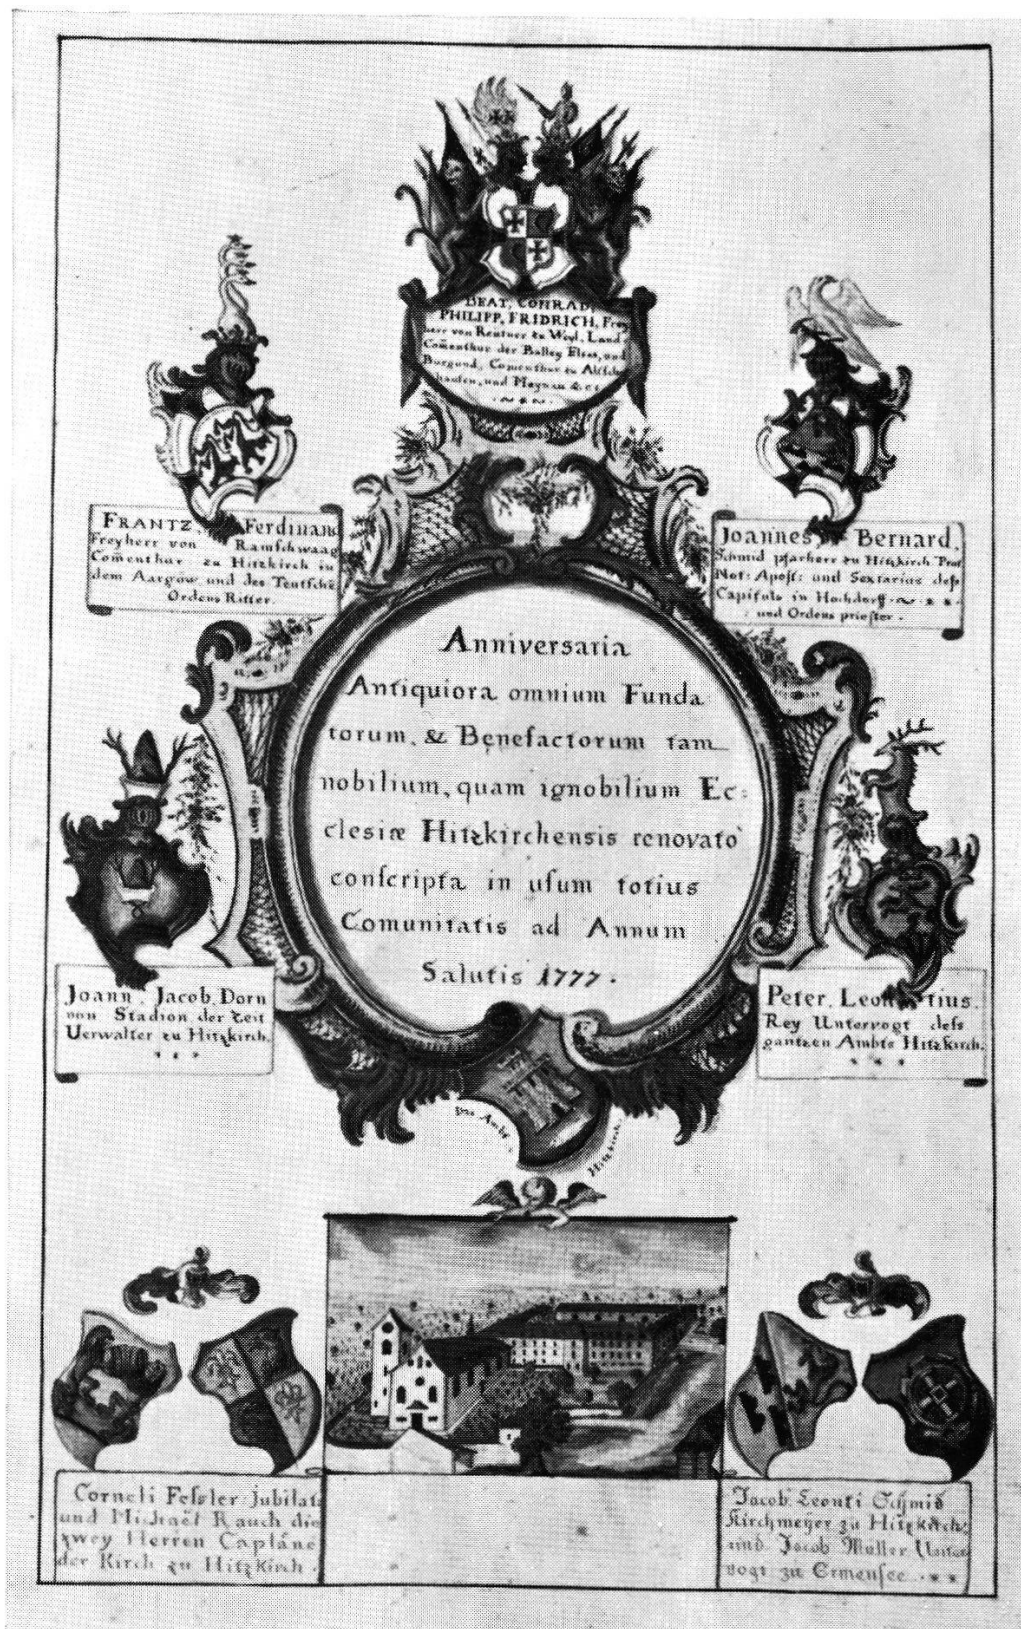 BEAT, CONRAD,
PHILIPP, FRIDRICH, Frey
herr von Reutner zu Weyl, Land
Com̄enthur der Balley Elsas, und
Burgund, Comenthur zu Altsch
hausen, und Meynau &c:
FRANTZ, Ferdinand
Freyherr von Ramschwaag
Com̄enthur zu Hitzkirch in
dem Aargöw und des Teutschē
Ordens Ritter.
Joannes Bernard,
Schmid pfarherr zu Hitzkirch Prot
Not: Apost: und Sextarius deß
Capituls in Hochdorff.
und Ordens priester.
Anniversaria
Antiquiora omnium Funda
torum, & Benefactorum tam
nobilium, quam ignobilium Ec:
clesiæ Hitzkirchensis renovató
conscripta in usum totius
Comunitatis ad Annum
Salutis 1777.
Joann, Jacob, Dorn
von Stadion der Zeit
Verwalter zu Hitzkirch.
Peter, Leontius.
Rey Untervogt dess
gantzen Ambts Hitzkirch.
Das Ambt
Hitzkirch.
Corneli Fessler jubilat:
und Michaël Rauch die
zwey Herren Capläne
der Kirch zu Hitzkirch.
Jacob Leonti Schmid
Kirchmeÿer zu Hitzkirch,
und Jacob Muller Unter
vogt zu Ermensee.